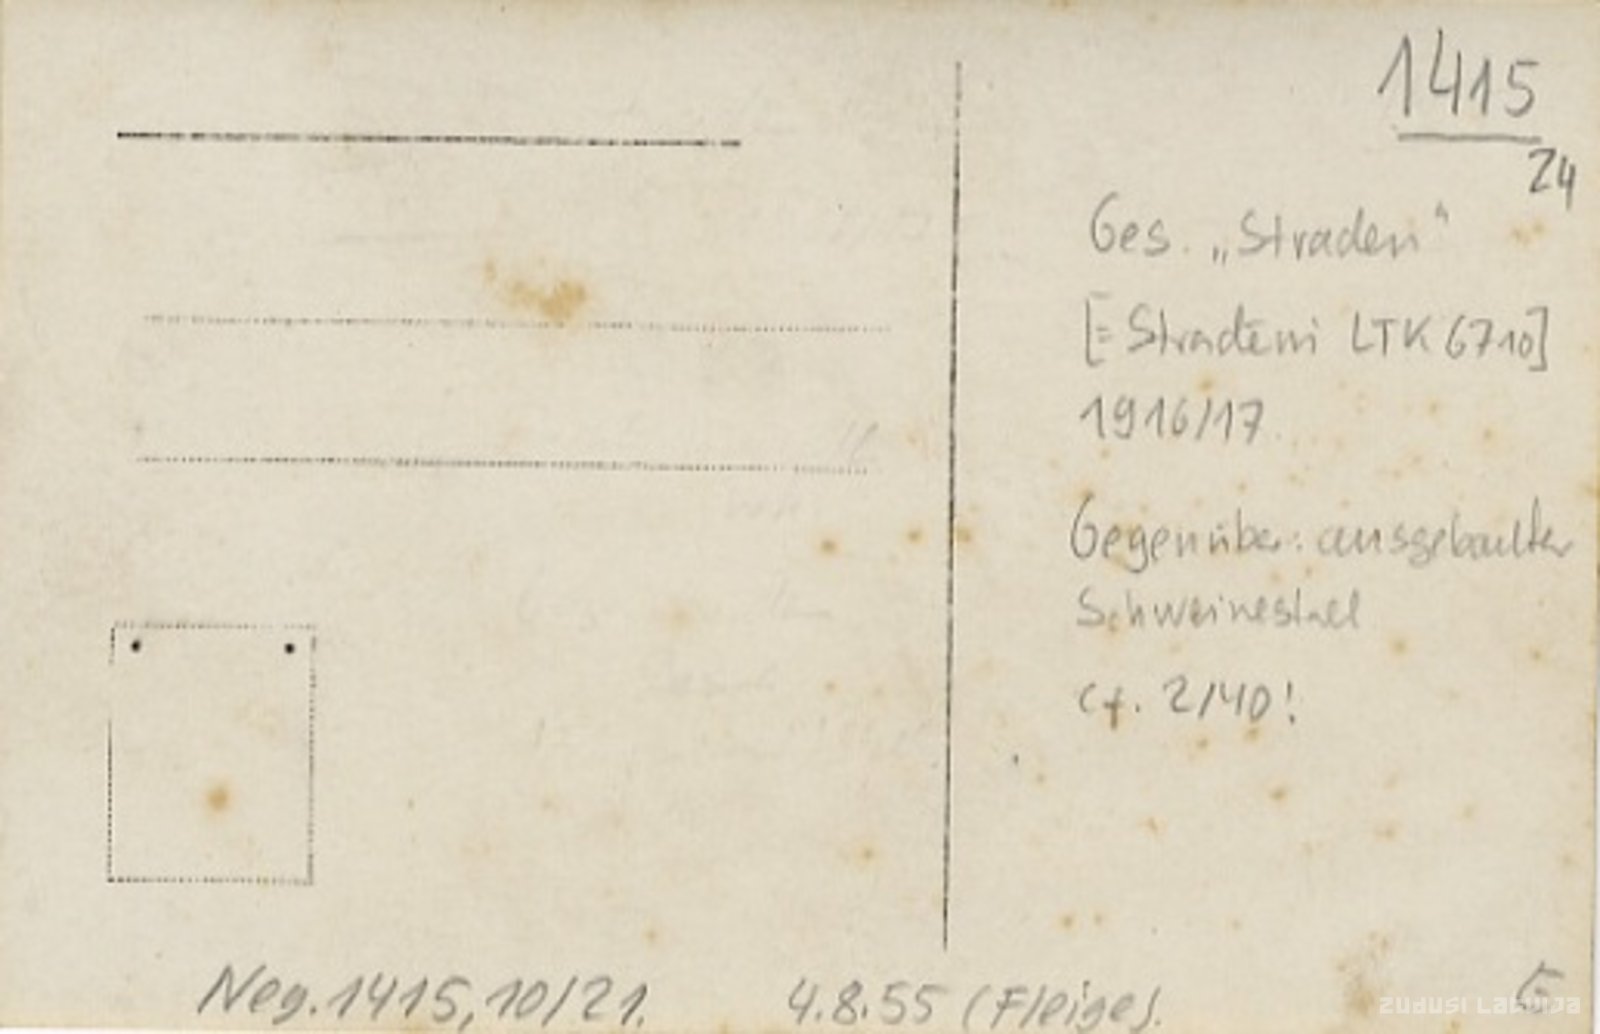 1415
24
Ges. „Straden“
[= Stradeni LTK 6710]
1916/17
Gegenüber: ausgebauter
Schweinestall
cf. 2/40!
Neg. 1415, 10/21. 4.8.55 (Fleige).
ZUDUSI LATVIJA